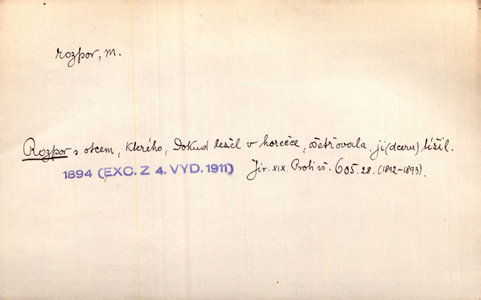 rozpor, m.
Rozpor s otcem, kterého, dokud ležel v horečce, ošetřovala, ji (dceru) tížil.
1894 (EXC. Z 4. VYD. 1911)
Jir. XIX. Proti vš. 605. 28. (1892-1893).